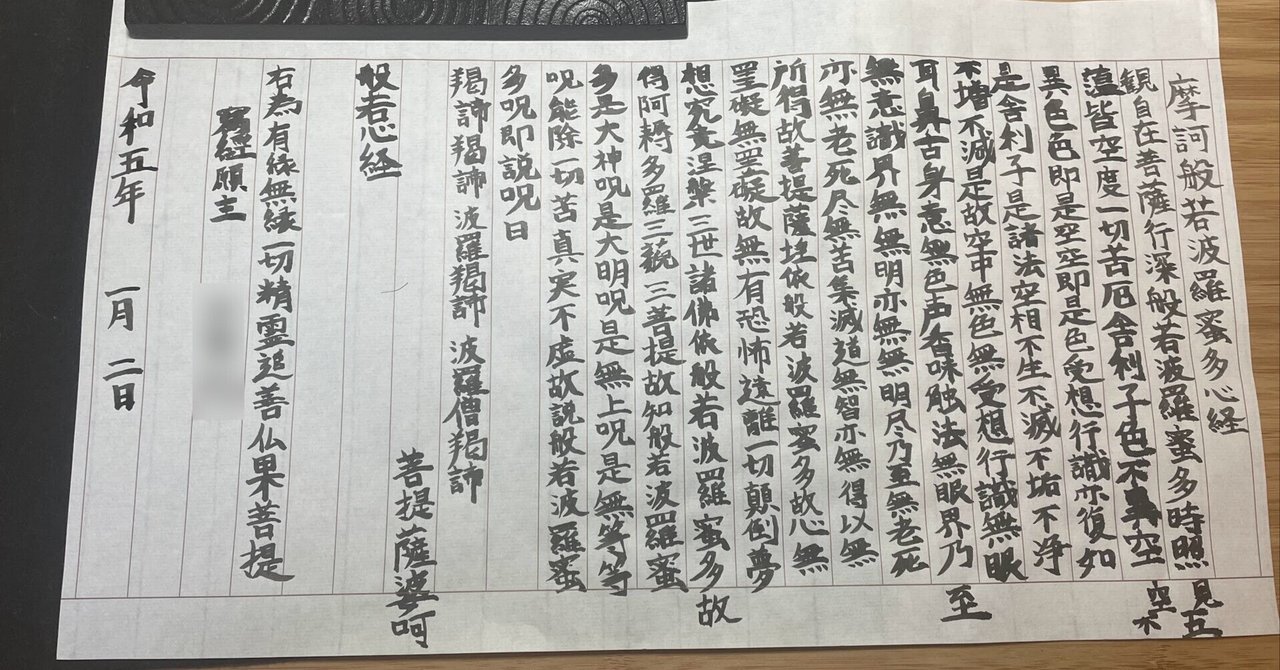 摩訶般若波羅蜜多心経
観自在菩薩行深般若波羅蜜多時照見五
蘊皆空度一切苦厄舎利子色不異空空不
異色色即是空空即是色受想行識亦復如
是舎利子是諸法空相不生不滅不垢不浄
不増不減是故空中無色無受想行識無眼
耳鼻舌身意無色声香味触法無眼界乃至
無意識界無無明亦無無明尽乃至無老死
亦無老死尽無苦集滅道無智亦無得以無
所得故菩提薩埵依般若波羅蜜多故心無
罣礙無罣礙故無有恐怖遠離一切顛倒夢
想究竟涅槃三世諸佛依般若波羅蜜多故
得阿耨多羅三藐三菩提故知般若波羅蜜
多是大神呪是大明呪是無上呪是無等等
呪能除一切苦真実不虚故説般若波羅蜜
多呪即説呪曰
羯諦羯諦 波羅羯諦 波羅僧羯諦
菩提薩婆呵
般若心経
右為有縁無縁一切精霊追善仏果菩提
寫経願主
令和五年 一月 二日